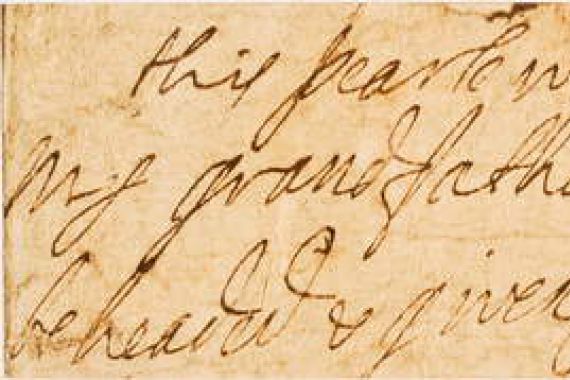 this pearle w
my grandfathe
beheaded & given